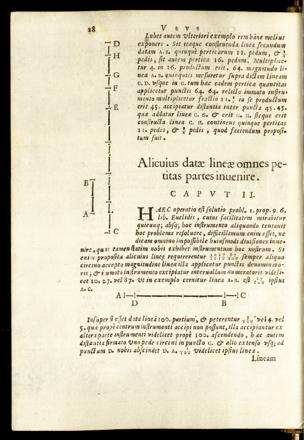 28 V S V S
Lubet autem ulteriori exemplo rem hanc melius
exponere. Sit itaque construenda linea secundum
datam A B. quinque perticarum 11. pedum, & 4/5
pedis, sit autem pertica 16. pedum. Multiplice-
tur 4. in 16. productum erit. 64. magnitudo li-
nea A B. quinquies mensuretur supra dictam lineam
C D. usque in
applicetur punctis 64. 64. relicto immoto instru-
mento multiplicetur
erit 45. accipiatur distantia inter puncta 45. 45.
quæ addatur linea C G. & erit
constructa linea C H. continens quinque perticas
11. pedes, & pedis, quod faciendum proposi-
tum fuit.
Alicuius datæ lineæ omnes pe-
titas partes inuenire.
C A P V T I I.
HAEC operatio est solutio probl. 1. prop. 9. 6.
lib. Euclidis, cuius facilitatem mirabitur
quicunq; absq; hoc instrumento aliquando tentauit
hoc problema resoluere, difficillimum enim esset, ne
dicam omnino impossibile huiusmodi diuisiones inue-
nire, quas tamen statim nobis exhibet instrumentum hoc nostrum. Si
enim proposita alicuius lineæ requirerentur semper aliquo
circino accepta magnitudine lineæ illa applicetur punctis denominato-
ris; & immoto instrumento excipiatur interuallum numeratoris videli-
cet 10. 27. vel 87. Ut in exemplo cernitur linea A B. est ipsius
A C.
A B C
D
Insuper si esset data linea 100. partium, & peterentur vel 4. vel
5. quæ propè centrum instrumenti accipi non possunt, illa accipiantur ex
altera parte instrumenti videlicet propè 100. ascendendo, & hac autem
distantia firmato uno pede circini in puncto C. & alio extenso usq; ad
punctum D. nobis abscindet D A. videlicet ipsius lineæ.
Lineam
D
H
G
F
E
B
A
C